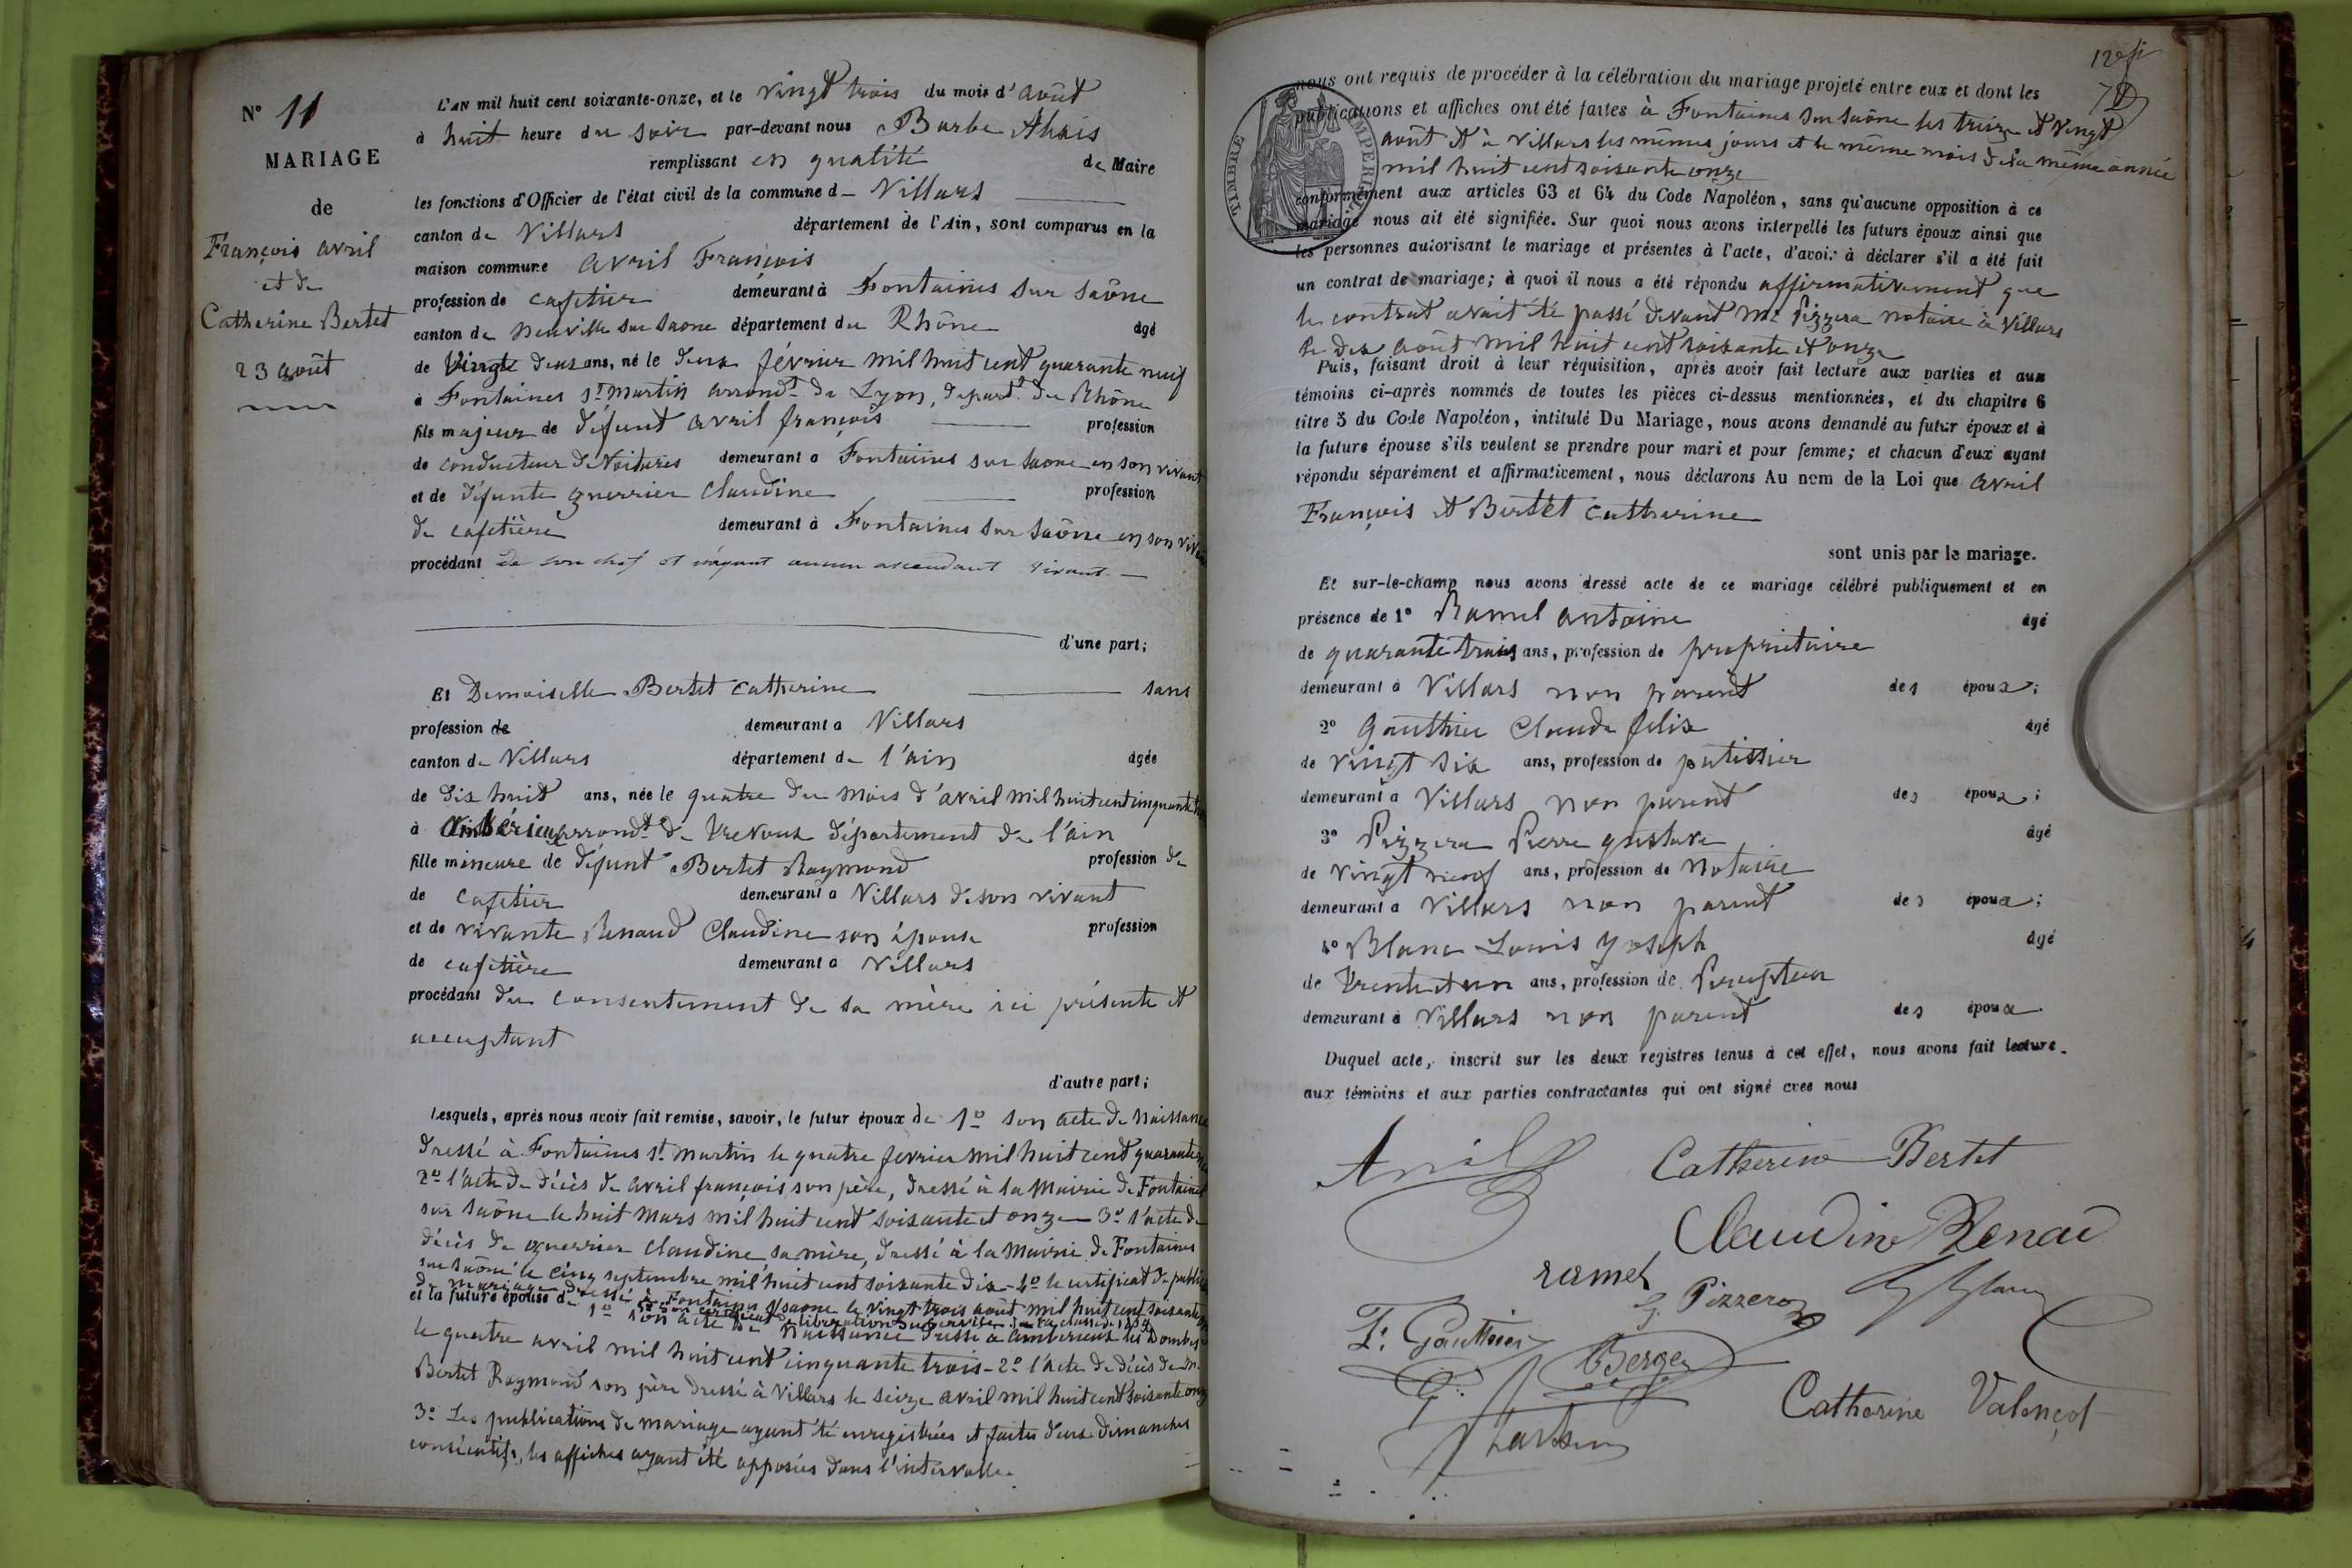 N° 11
MARIAGE
de
François Avril
et de
Catherine Bertet
23 août
L'AN mil huit cent soixante-onze, et le vingt trois du mois d'août
à huit heure du soir par-devant nous Barbe
remplissant en qualité de Maire
les fonctions d'Officier de l'état civil de la commune de Villars
canton de Villars département de l'Ain, sont comparus en la
maison commune Avril François
profession de cafetier demeurant à Fontaines sur Saône
canton de Neuville sur Saone département du Rhône âgé
de Vingt deux ans, né le deux février mil huit cent quarante neuf
à Fontaines St Martin arrondt de Lyon, départ. du Rhône
fils majeur de défunt Avril françois profession
de conducteur de Voitures demeurant a Fontaines sur Saone en son vivant
et de défunte guerrier Claudine profession
de cafetière demeurant à Fontaines sur Saône en son vivant
procédant de son chef et n'ayant aucun ascendant vivant
d'une part;
Et Demoiselle Bertet Catherine sans
profession de demeurant a Villars
canton de Villars département de l'ain âgée
de dix huit ans, née le quatre du mois d'avril mil huit cent cinquante trois
à Ambérieux arrondt de Trevoux département de l'ain
fille mineure de défunt Bertet Raymond profession de
de cafetier demeurant a Villars de son vivant
et de vivante Renaud Claudine son épouse profession
de cafetière demeurant a Villars
procédant du consentement de sa mère ici présente et
acceptant
d'autre part;
Lesquels, après nous avoir fait remise, savoir, le futur époux de 1° son acte de naissance
dressé à Fontaines St Martin le quatre fevrier mil huit cent quarante
2° l'acte de décès de avril françois, son père, dressé à la Mairie de Fontaines
sur Saône le huit Mars mil huit cent soixante et onze 3° l'acte de
décès de guerrier Claudine, sa mère, dressé à la Mairie de Fontaines
sur Saône le cinq septembre mil huit cent soixante dix - 4° le certificat de
de mariage dressé à Fontaines s/ saone le vingt trois août mil huit cent soixante
5° son certificat de libération du service de la classe de
et la future épouse de 1° son acte de naissance dressé à Ambérieux les Dombes
le quatre avril mil huit cent cinquante trois - 2° l'acte de décès de
Bertet Raymond son père dressé à Villars le seize avril mil huit cent soixante onze
3° Les publications de mariage ayant été enregistrées et faites deux dimanches
consécutifs, les affiches ayant été apposées dans l'intervalle.
TIMBRE IMPERIAL
nous ont requis de procéder à la célébration du mariage projeté entre eux et dont les
publications et affiches ont été faites à Fontaines sur Saône les treize et vingt
août et à Villars les mêmes jours et le même mois de la même année
mil huit cent soixante onze
conformément aux articles 63 et 64 du Code Napoléon, sans qu'aucune opposition à ce
mariage nous ait été signifiée. Sur quoi nous avons interpellé les futurs époux ainsi que
les personnes autorisant le mariage et présentes à l'acte, d'avoir à déclarer s'il a été fait
un contrat de mariage; à quoi il nous a été répondu affirmativement que
le contrat avait été passé devant Me Pizzera notaire à Villars
le dix août mil huit cent soixante et onze
Puis, faisant droit à leur réquisition, après avoir fait lecture aux parties et aux
témoins ci-après nommés de toutes les pièces ci-dessus mentionnées, et du chapitre 6
titre 5 du Code Napoléon, intitulé Du Mariage, nous avons demandé au futur époux et à
la future épouse s'ils veulent se prendre pour mari et pour femme; et chacun d'eux ayant
répondu séparément et affirmativement, nous déclarons Au nom de la Loi que Avril
François et Bertet Catherine
sont unis par le mariage.
Et sur-le-champ nous avons dressé acte de ce mariage célébré publiquement et en
présence de 1° Ramel Antoine âgé
de quarante trois ans, profession de propriétaire
demeurant à Villars non parent des époux;
2° Gauthier Claude felix âgé
de vingt six ans, profession de patissier
demeurant a Villars non parent des époux;
3° Pizzera Pierre gustave âgé
de vingt neuf ans, profession de Notaire
demeurant a Villars non parent des époux;
4° Blanc Louis Joseph âgé
de trente et un ans, profession de Percepteur
demeurant à Villars non parent des époux
Duquel acte, inscrit sur les deux registres tenus à cet effet, nous avons fait lecture
aux témoins et aux parties contractantes qui ont signé avec nous
Avril Catherine Bertet
Claudine Renad
ramel G. Pizzera
F. Gauthier Berger
Catherine Valençot